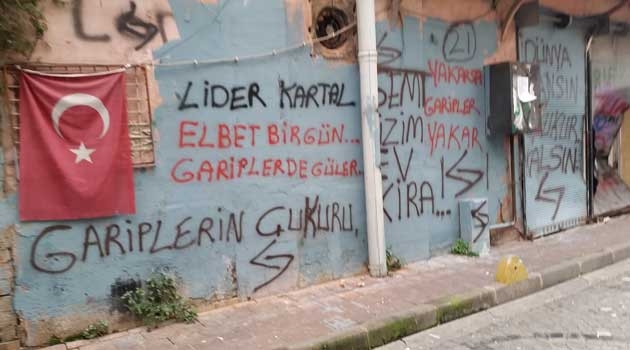 LİDER KARTAL
ELBET BİRGÜN...
GARİPLERDE GÜLER...
GARİPLERİN ÇUKURU,
SEM
İZİM
EV
KİRA...
21
YAKARSA
GARİPLER
YAKAR
DÜNYA
ANSIN
ÇUKUR
ALSIN